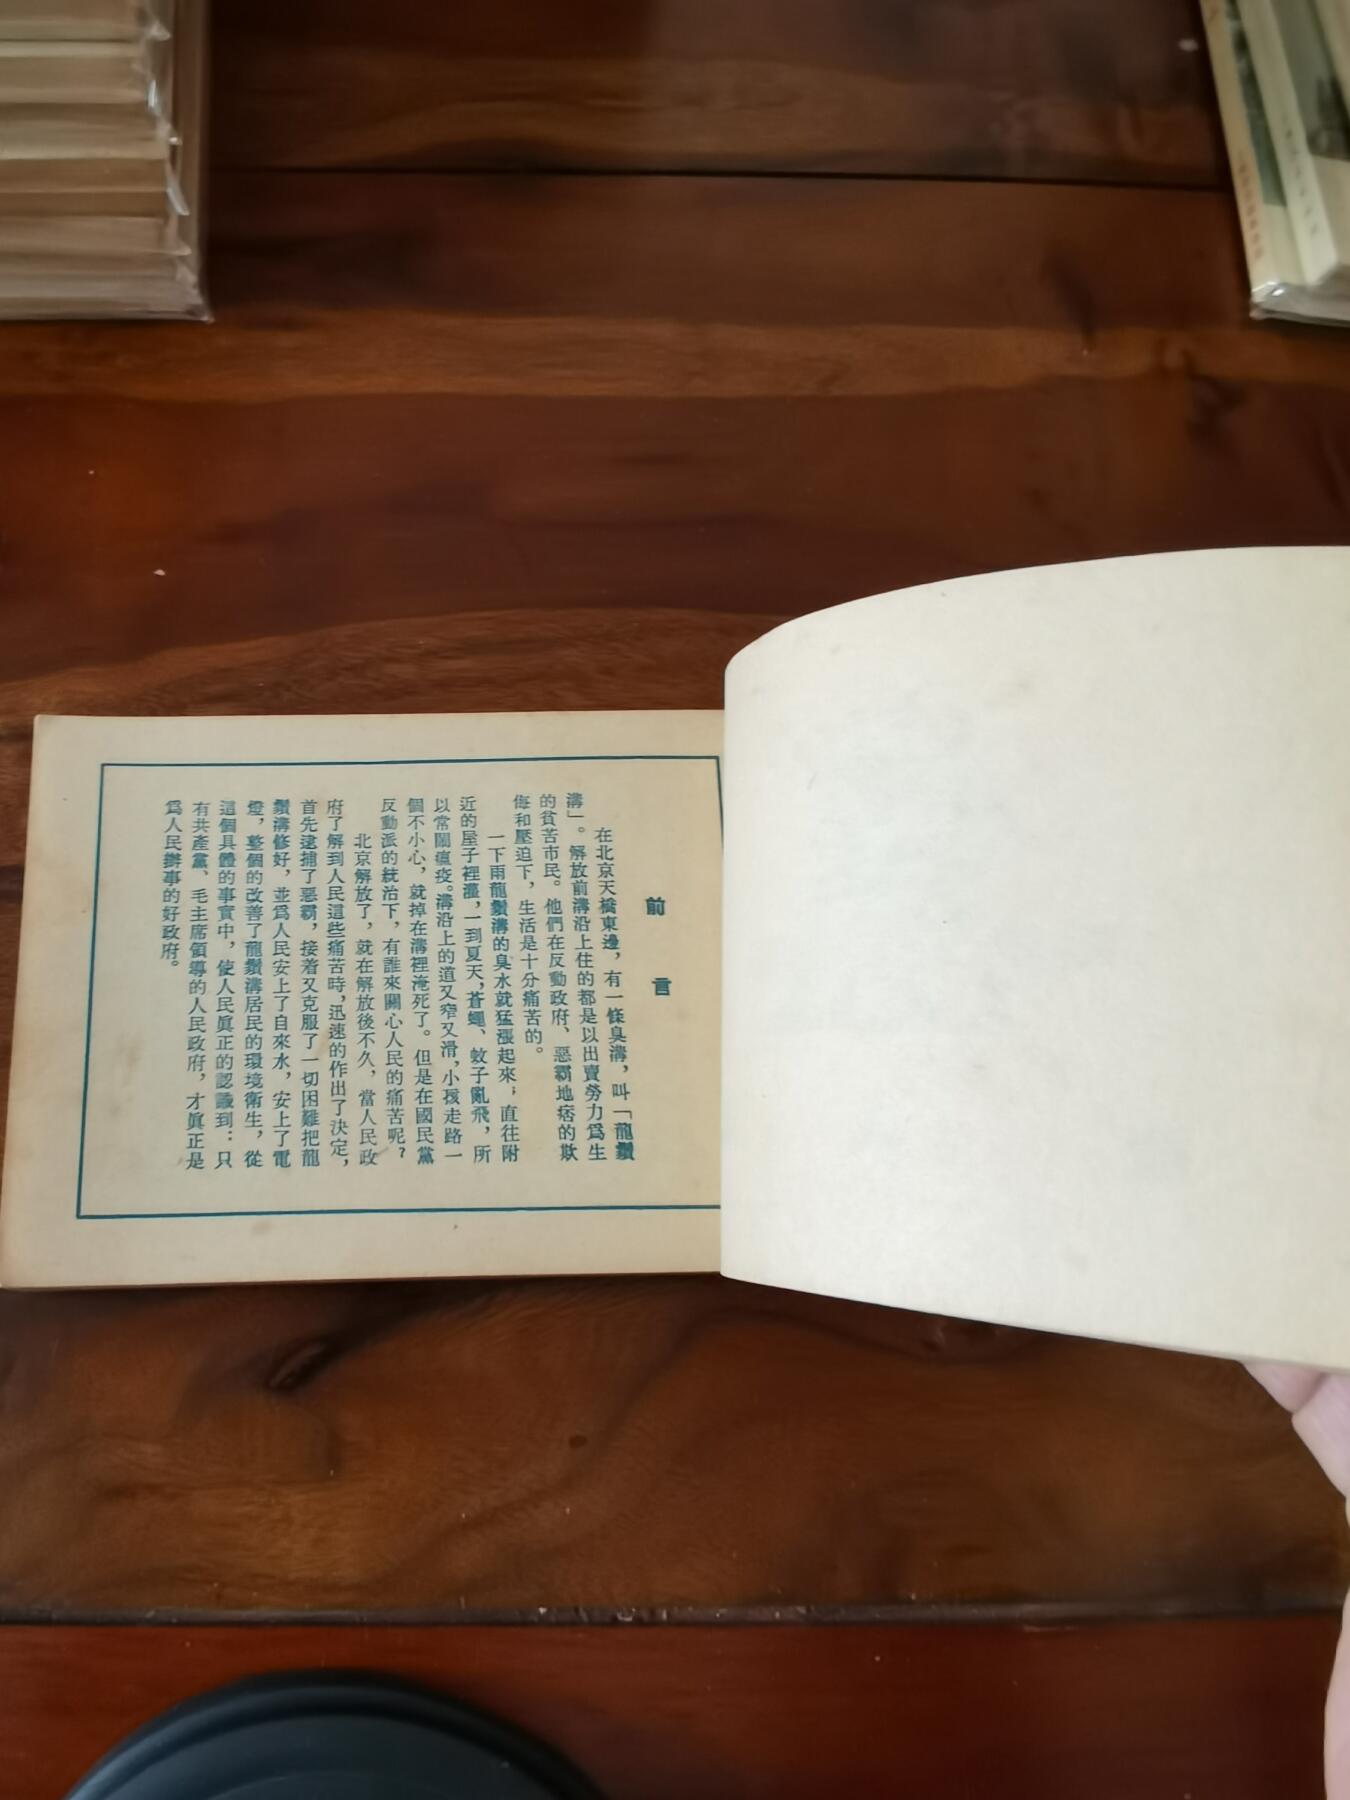 前言
在北京天橋東邊，有一條臭溝，叫「龍鬚
溝」。解放前溝沿上住的都是以出賣勞力爲生
的貧苦市民。他們在反動政府、惡霸地痞的欺
侮和壓迫下，生活是十分痛苦的。
一下雨龍鬚溝的臭水就猛漲起來；直往附
近的屋子裡灌，一到夏天，蒼蠅、蚊子亂飛，所
以常鬧瘟疫。溝沿上的道又窄又滑，小孩走路一
個不小心，就掉在溝裡淹死了。但是在國民黨
反動派的統治下，有誰來關心人民的痛苦呢？
北京解放了，就在解放後不久，當人民政
府了解到人民這些痛苦時，迅速的作出了決定，
首先逮捕了惡霸，接着又克服了一切困難把龍
鬚溝修好，並爲人民安上了自來水，安上了電
燈，整個的改善了龍鬚溝居民的環境衛生，從
這個具體的事實中，使人民眞正的認識到：只
有共產黨、毛主席領導的人民政府，才眞正是
爲人民辦事的好政府。